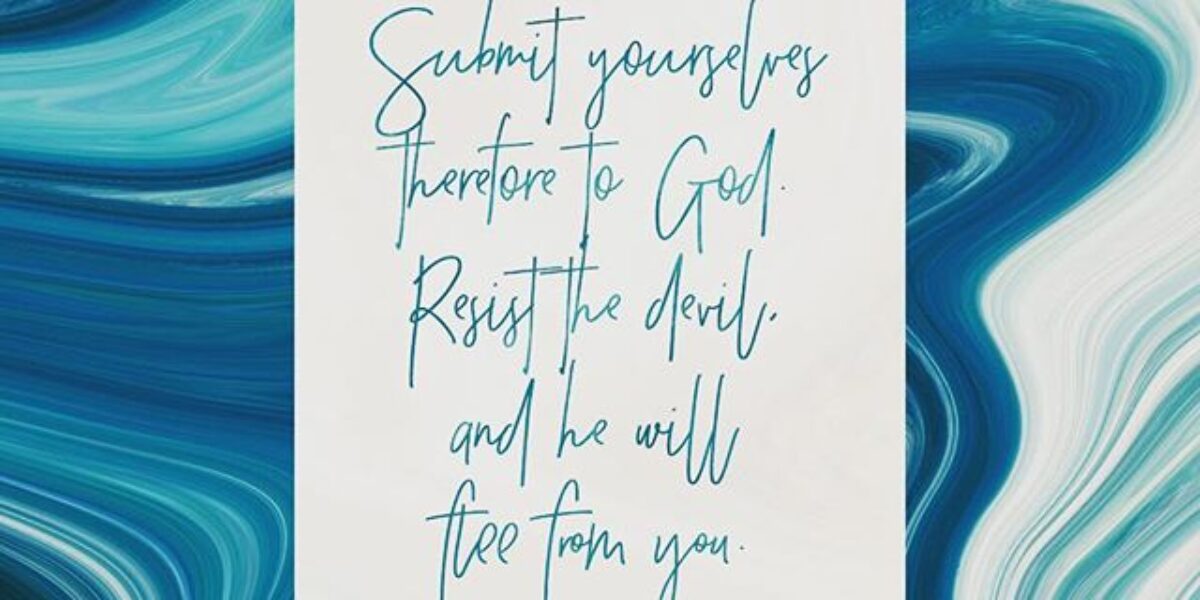 Submit yourselves
therefore to God.
Resist the devil,
and he will
flee from you.